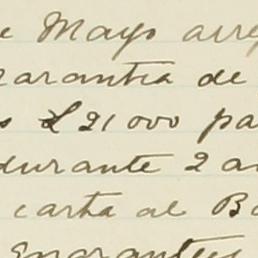 e Mayo arre
garantia de
s £21000 pa
durante 2 a
carta al Ba
Garanties